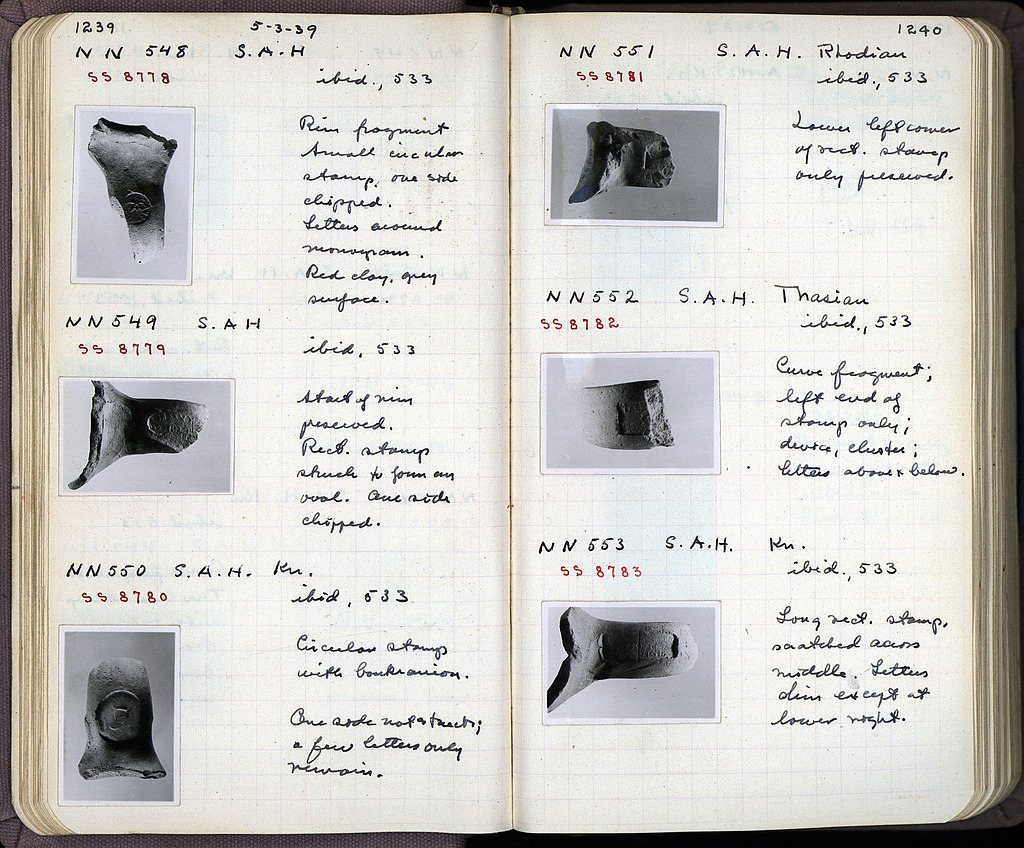 1239 5-3-39
NN 548 S.A.H
SS 8778 ibid., 533
Rim fragment
Small circular
stamp, one side
chipped.
Letters around
monogram.
Red clay, grey
surface.
NN 549 S.A.H
SS 8779 ibid, 533
Start of rim
preserved.
Rect. stamp
struck to form an
oval. One side
chipped.
NN 550 S.A.H. Kn.
SS 8780 ibid, 533
Circular stamp
with boukranion.
One side not struck;
a few letters only
remain.
1240
NN 551 S.A.H. Rhodian
SS 8781 ibid., 533
Lower left corner
of rect. stamp
only preserved.
NN 552 S.A.H. Thasian
SS 8782 ibid., 533
Curve fragment;
left end of
stamp only;
device, cluster;
letters above & below.
NN 553 S.A.H. Kn.
SS 8783 ibid., 533
Long rect. stamp,
scratched across
middle. Letters
dim except at
lower right.